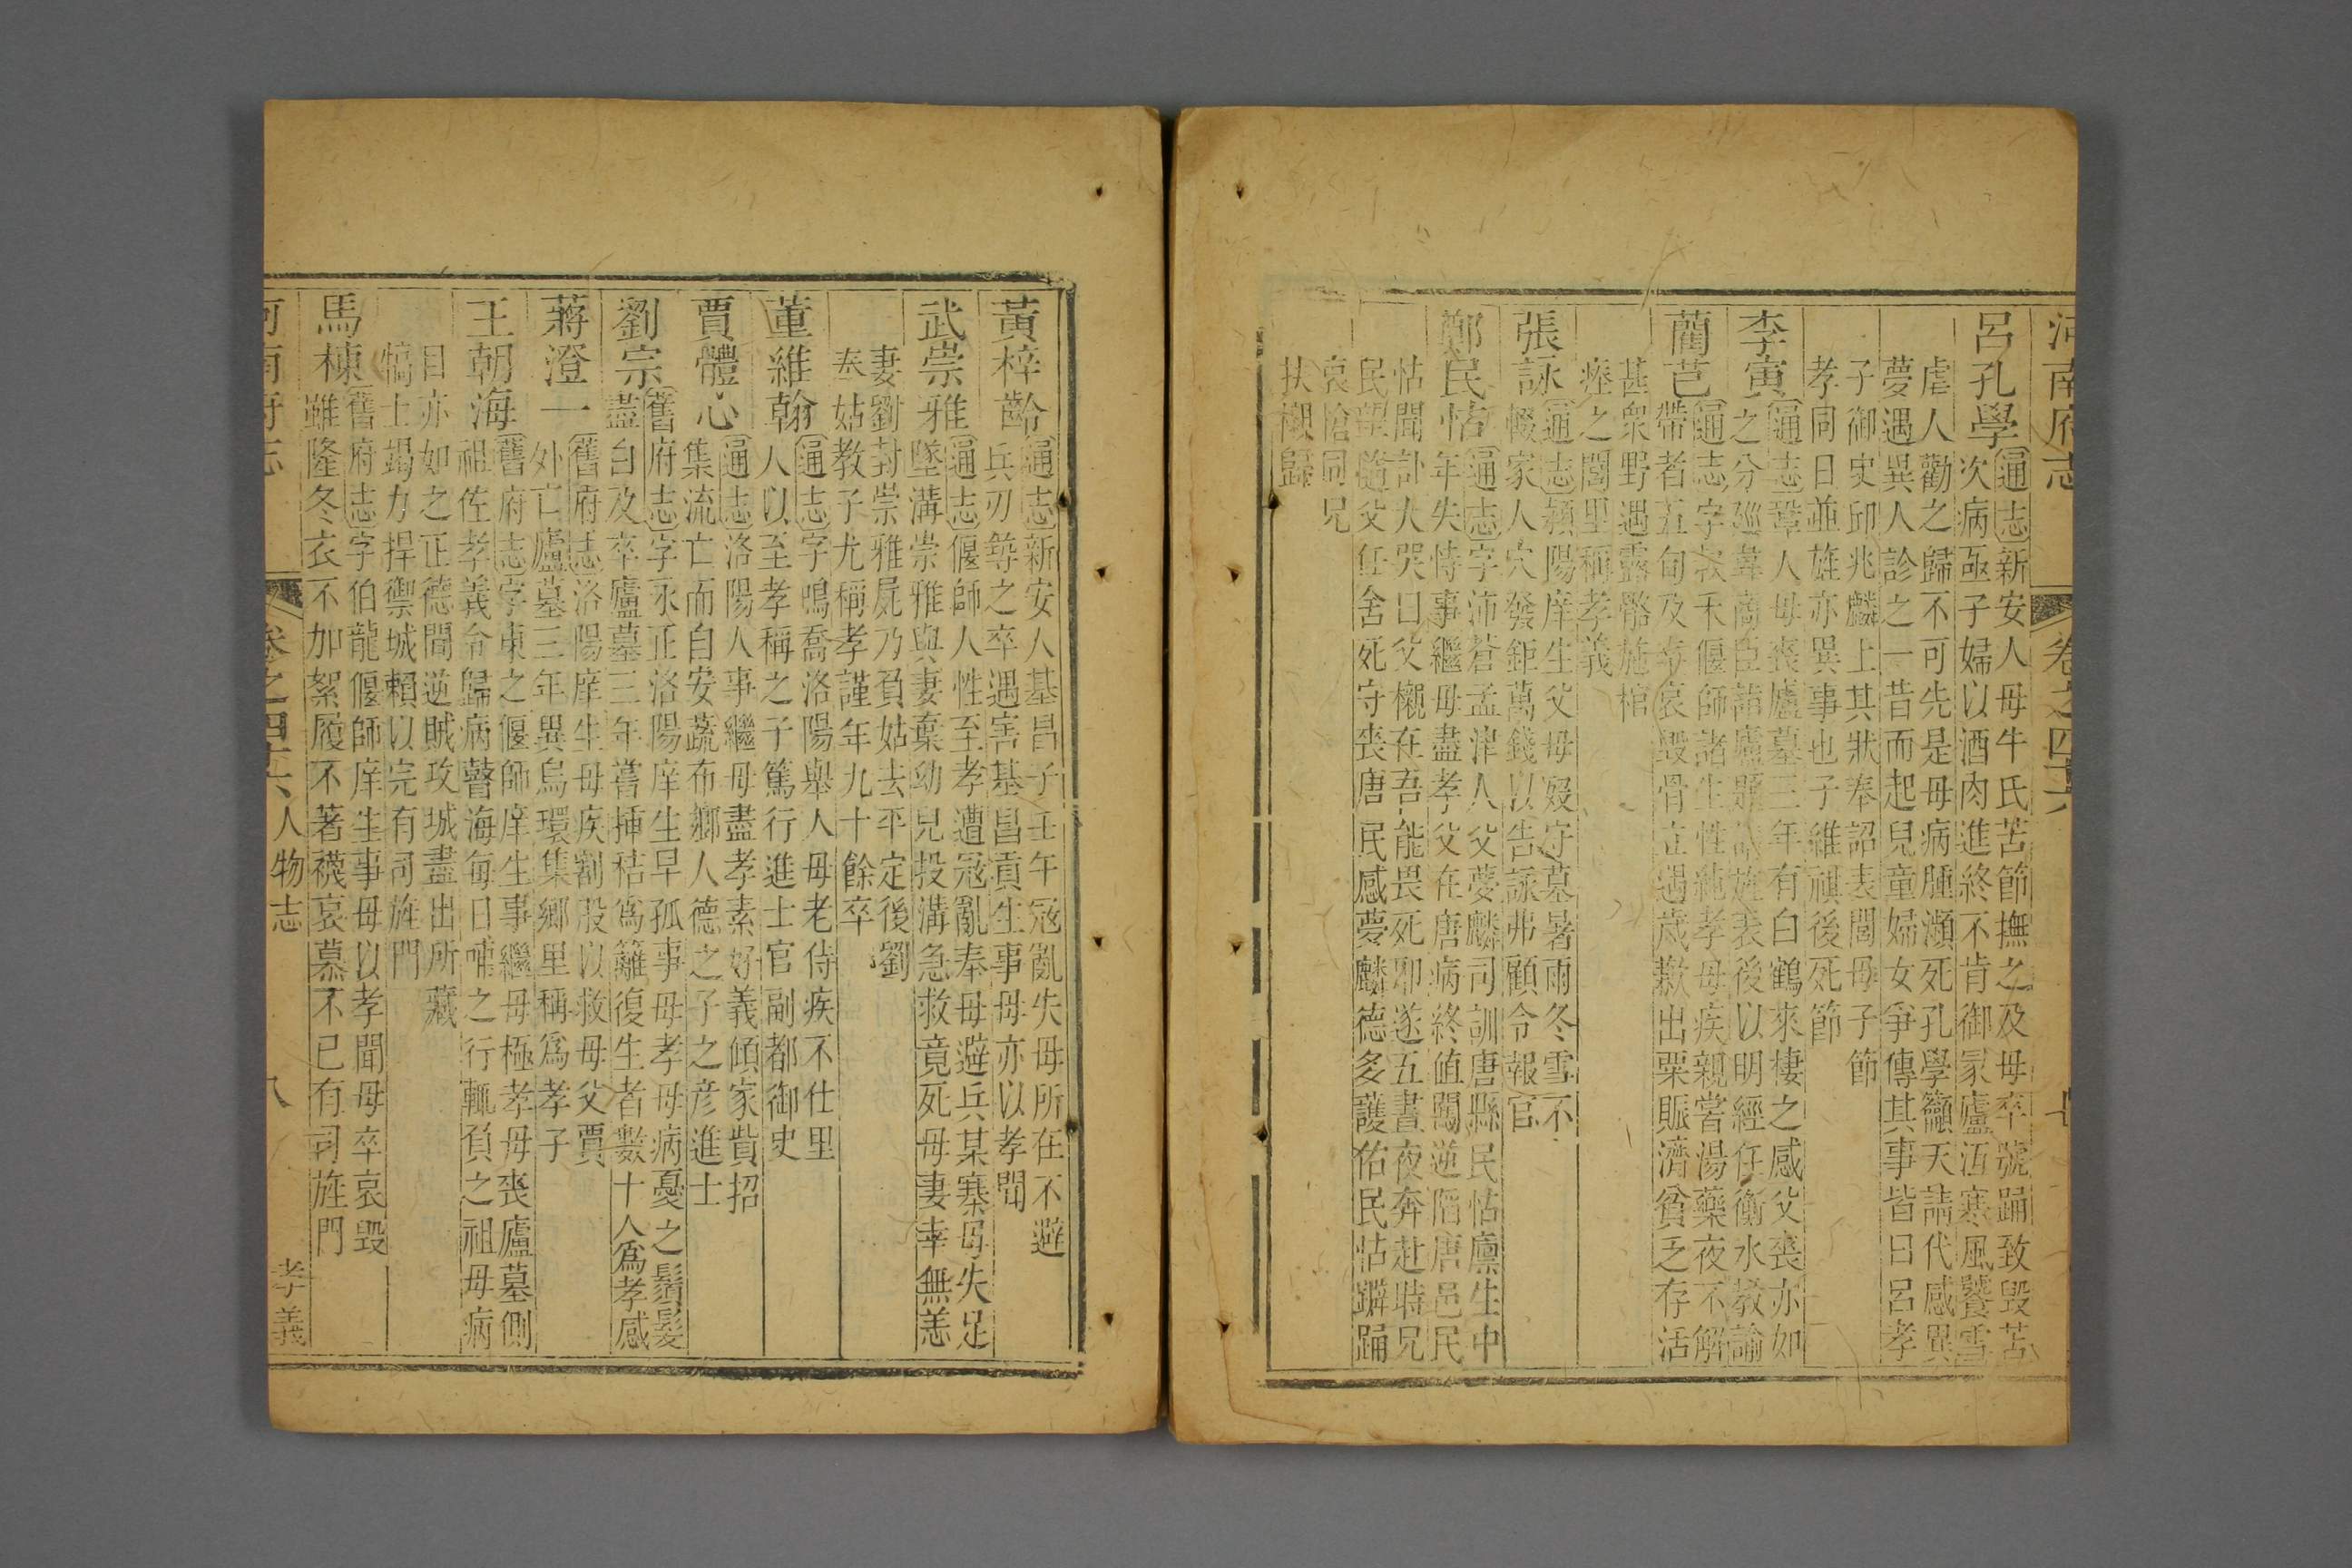 河南府志 卷之四十六 七
呂孔學
通志新安人母牛氏苦節撫之及母卒號踊致毀苦
次病亟子婦以酒肉進終不肯御冢廬沍寒風饕雪
虐人勸之歸不可先是母病腫瀕死孔學籲天請代感異
夢遇異人診之一昔而起兒童婦女爭傳其事皆曰呂孝
子御史邱兆麟上其狀奉詔表閭母子節
孝同日並旌亦異事也子維祺後死節
李寅
通志鞏人母喪廬墓三年有白鶴來棲之感父喪亦如
之分巡
旌表後以明經任衡水教諭
藺芑
通志字
禾偃師諸生性純孝母疾親嘗湯藥夜不解
帶者五旬及
哀毀骨立遇歲歉出粟賑濟貧乏存活
甚衆野遇露骼施棺
瘞之閭里稱孝義
張詠
通志潁陽庠生父母歿守墓暑雨冬雪不
輟家人穴發鉅萬錢以告詠弗顧令報官
鄭民怙
通志字沛蒼孟津人父夢麟司訓唐縣民怙廩生中
年失恃事繼母盡孝父在唐病終值闖逆陷唐邑民
怙聞訃大哭曰父櫬在吾能畏死耶遂五晝夜奔赴時兄
民望隨父任舍死守喪唐民感夢麟德多護佑民怙躃踊
哀愴同兄
扶櫬歸
黃梓齡
通志新安人基昌子壬午寇亂失母所在不避
兵刃尋之卒遇害基昌貢生事母亦以孝聞
武崇雅
通志偃師人性至孝遭寇亂奉母避兵某寨母失足
墜溝崇雅與妻棄幼兒投溝急救竟死母妻幸無恙
妻劉封崇雅屍乃負姑去平定後劉
奉姑教子尤稱孝謹年九十餘卒
董維翰
通志字鳴喬洛陽舉人母老侍疾不仕里
人以至孝稱之子篤行進士官副都御史
賈體心
通志洛陽人事繼母盡孝素好義傾家貲招
集流亡而自安蔬布鄉人德之子之彥進士
劉宗
舊府志字永正洛陽庠生早孤事母孝母病憂之鬚髮
盡白及卒廬墓三年嘗挿秸爲籬復生者數十人爲孝感
蔣澄一
舊府志洛陽庠生母疾割股以救母父賈
外亡廬墓三年異烏環集鄉里稱爲孝子
王朝海
舊府志字東之偃師庠生事繼母極孝母喪廬墓側
祖佐孝義令歸病瞽海每日哺之行輒負之祖母病
目亦如之正德間逆賊攻城盡出所藏
犒士竭力捍禦城賴以完有司旌門
馬棟
舊府志字伯龍偃師庠生事母以孝聞母卒哀毀
雖隆冬衣不加絮履不著襪哀慕不已有司旌門
河南府志 卷之四十六 人物志 八 孝義